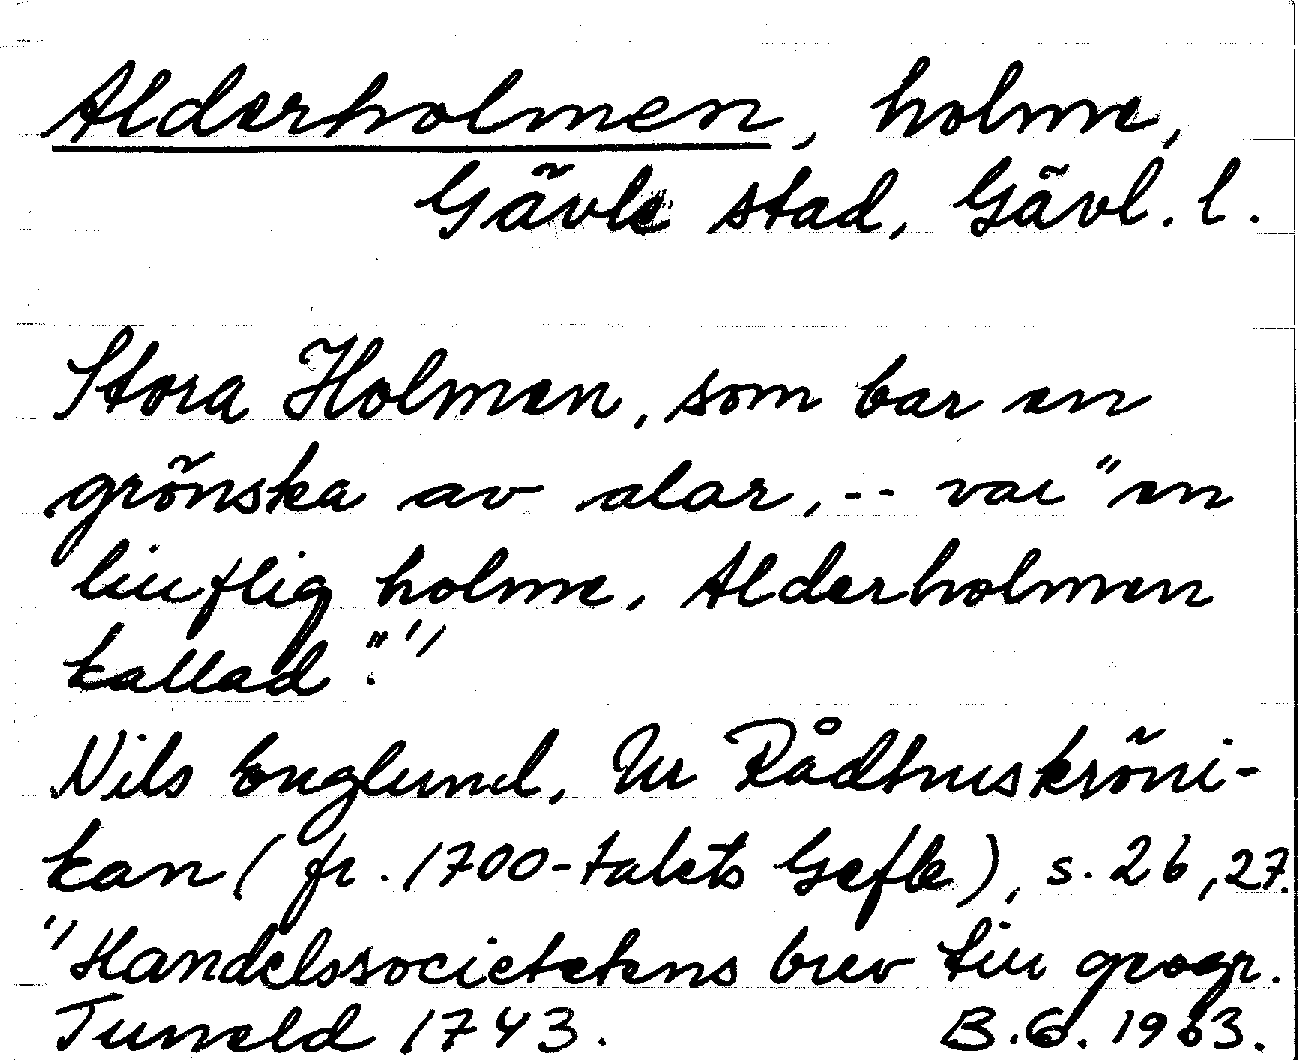 Alderholmen, holme,
Gävle stad, Gävl. l.
Stora Holmen, som bar en
grönska av alar, -- var "en
liuflig holme, Alderholmen
kallad".1)
Nils Englund, Ur Rådhuskröni-
kan (fr. 1700-talets Gefle), s. 26, 27.
1) Handelssocietetens brev till geogr.
Tuneld 1743. B.G. 1963.